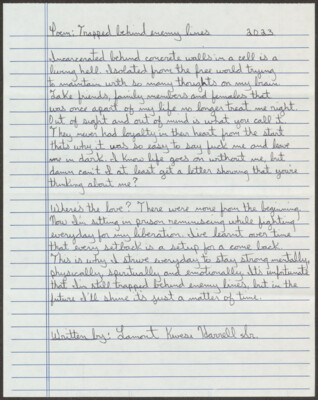 Poem: Trapped behind enemy lines 2023
Incarcerated behind concrete walls in a cell is a
living hell. Isolated from the free world trying
to maintain with so many thoughts on my brain.
Fake friends, family members and females that
was once apart of my life no longer treat me right.
Out of sight and out of mind is what you call it.
They never had loyalty in their heart from the start
thats why it was so easy to say fuck me and leave
me in dark. I know life goes on without me, but
damn can't I at least get a letter showing that you're
thinking about me?
Where's the love? There were none from the beginning.
Now I'm sitting in prison reminiscing while fighting
everyday for my liberation. I've learnt over time
that every setback is a setup for a come back.
This is why I strive everyday to stay strong mentally,
physically spiritually and emotionally. It's unfortunate
that I'm still trapped behind enemy lines, but in the
future I'll shine its just a matter of time.
Written by: Lamont Kwesie Harrell Sr.